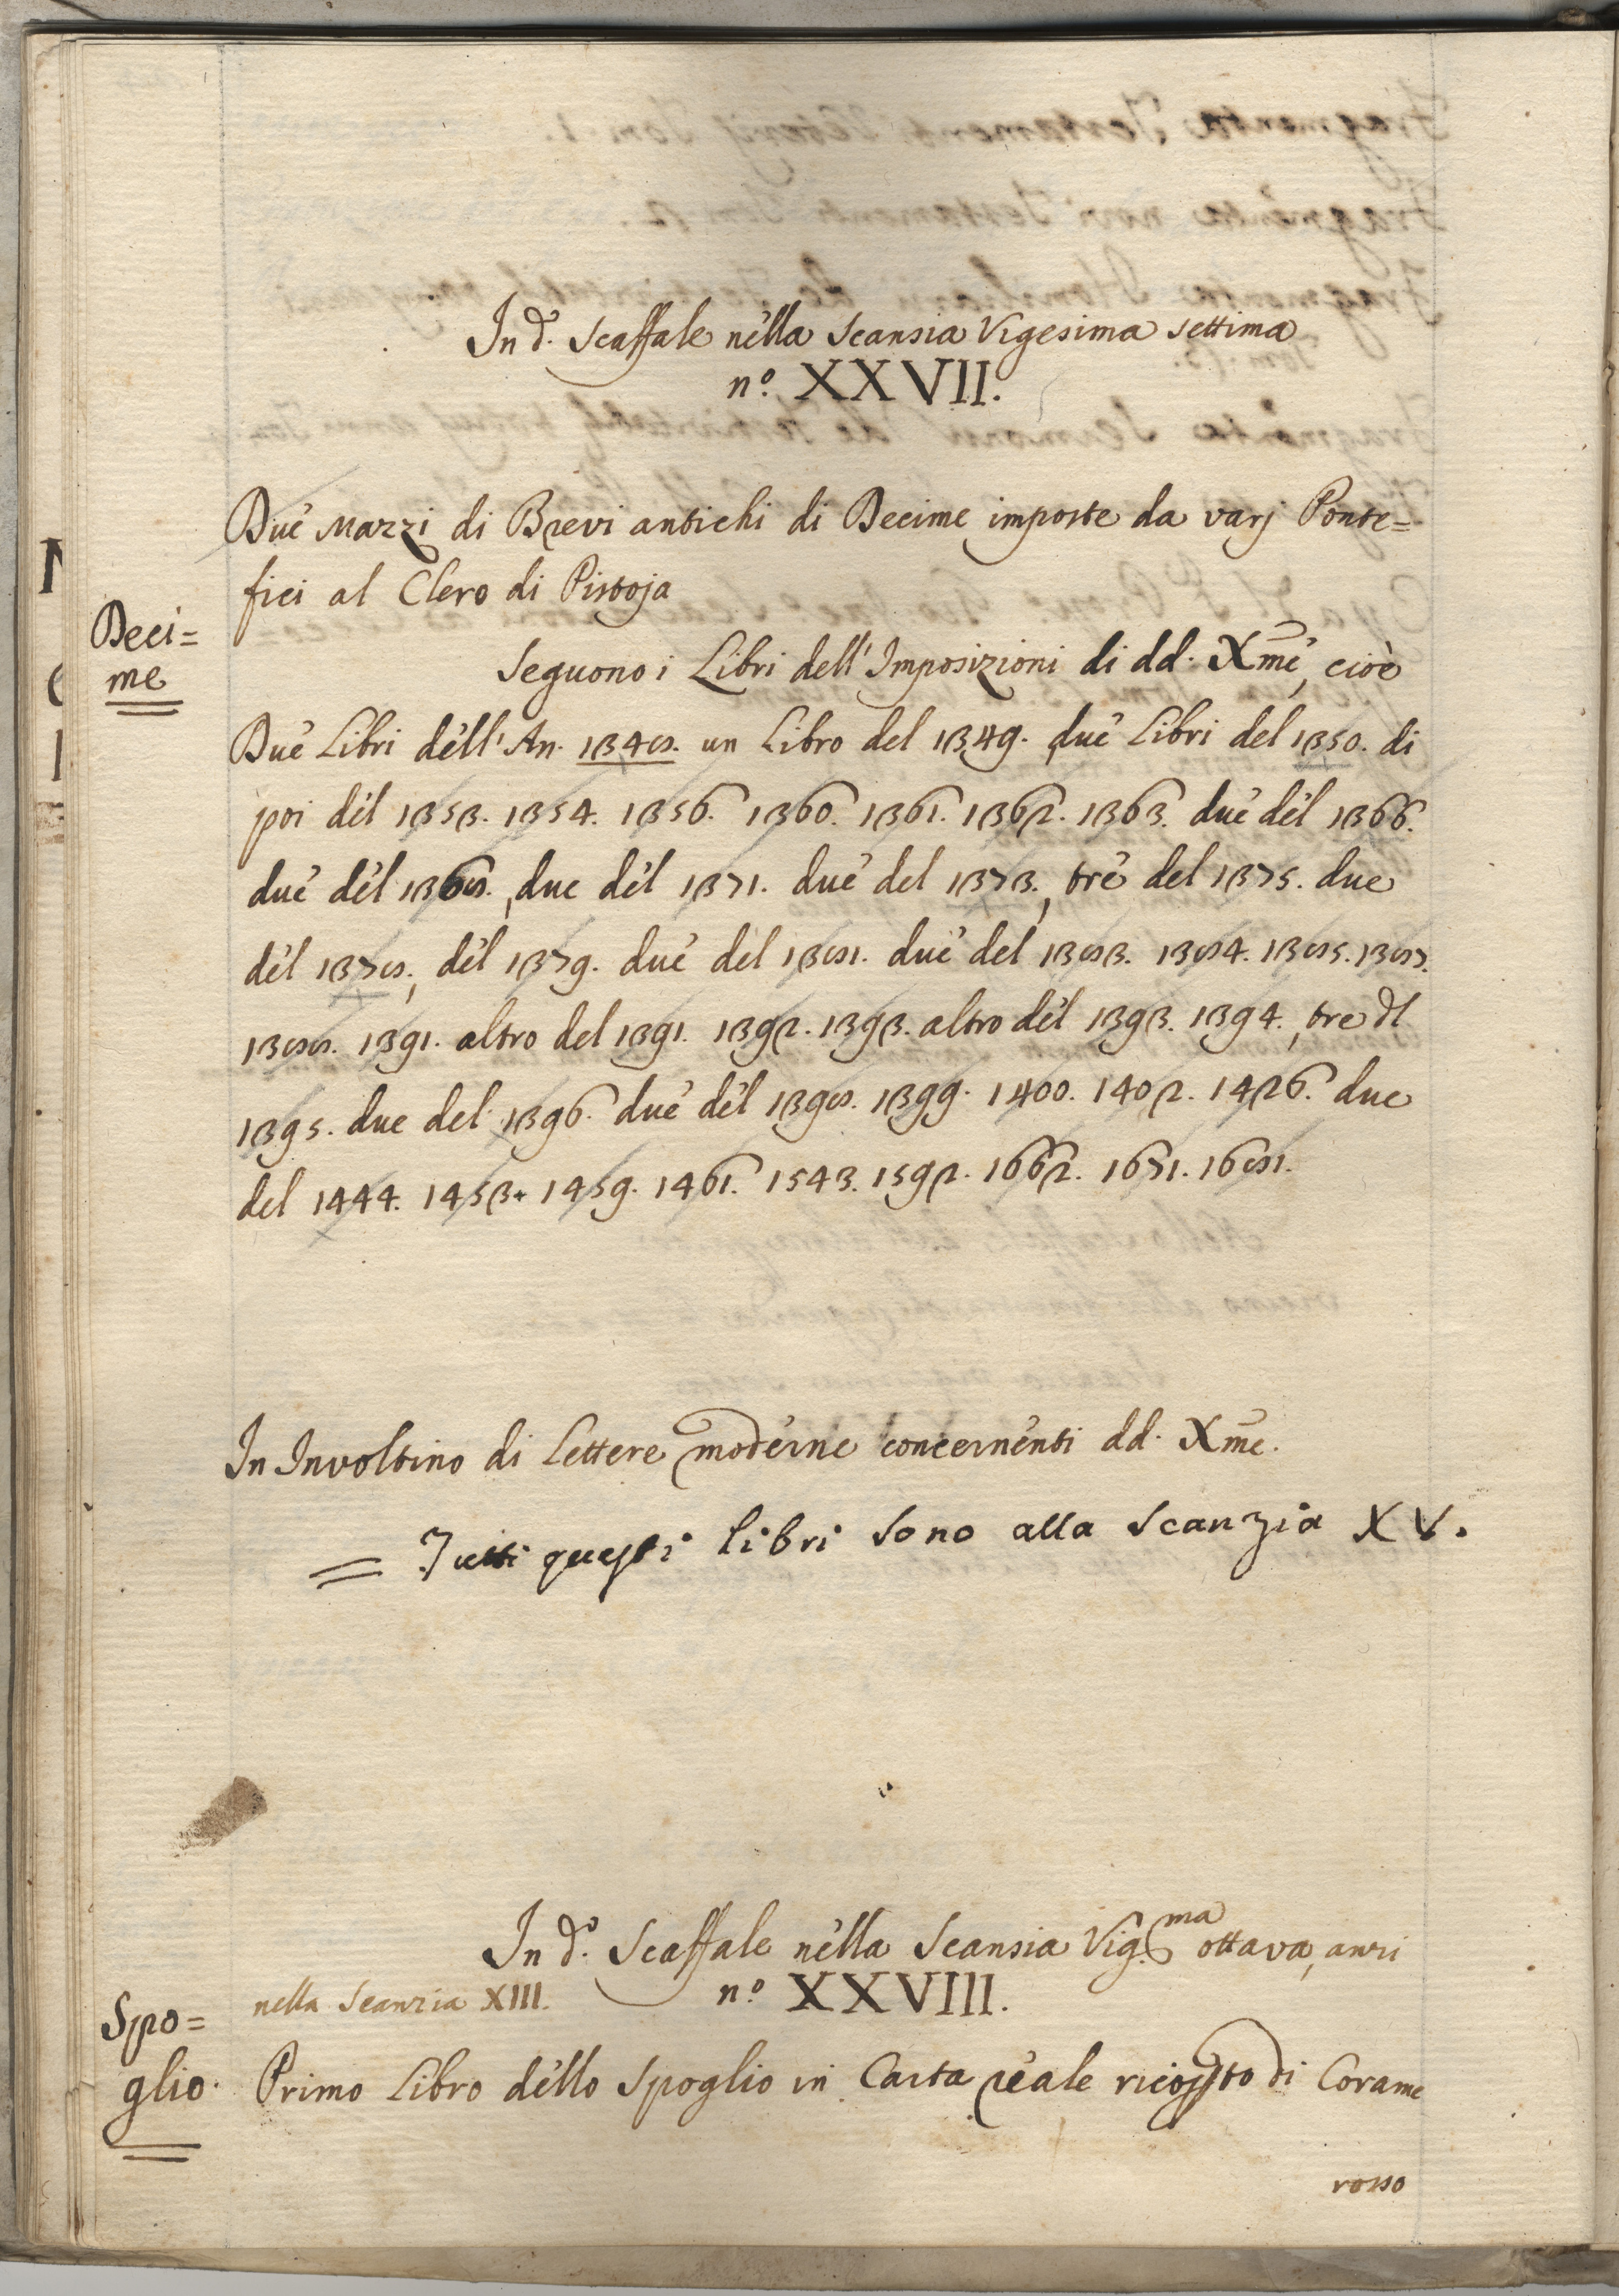 In d.° Scaffale nella Scansia Vigesima settima
n.° XXVII.
Due Mazzi di Brevi antichi di Decime imposte da varj Ponte=
fici al Clero di Pistoja
Deci=
me
Seguono i Libri dell'Imposizioni di dd. Xme, cioè
Due Libri dell'An. 1348. un Libro del 1349. due Libri del 1350. di
poi del 1353. 1354. 1356. 1360. 1361. 1362. 1363. due del 1366.
due del 1368., due del 1371. due del 1373., tre del 1375. due
del 1378., del 1379. due del 1381. due del 1383. 1384. 1385. 1387.
1388. 1391. altro del 1391. 1392. 1393. altro del 1393. 1394., tre dl
1395. due del 1396. due del 1398. 1399. 1400. 1402. 1426. due
del 1444. 1453. 1459. 1461. 1543. 1592. 1662. 1671. 1681.
In Involtino di Lettere moderne concernenti dd. Xme.
= Tutti questi libri sono alla Scanzia XV.
In d.° Scaffale nella Scansia Vig.ma ottava, anzi
nella Scanzia XIII.
n.° XXVIII.
Spo=
glio.
Primo Libro dello Spoglio in Carta reale ricopto di Corame
rosso